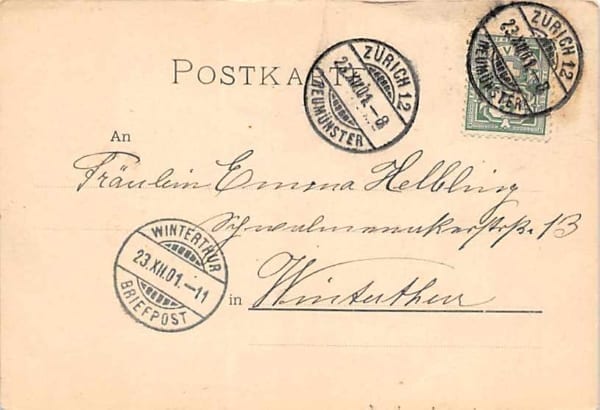 POSTKARTE
ZÜRICH 12
23.XII.01.-8
(NEUMÜNSTER)
ZÜRICH 12
23.XII.01.-8
(NEUMÜNSTER)
An
Fräulein Emma Helbling
Schwalmenakerstrß. 13
in Winterthur
WINTERTHUR
23.XII.01.-11
BRIEFPOST